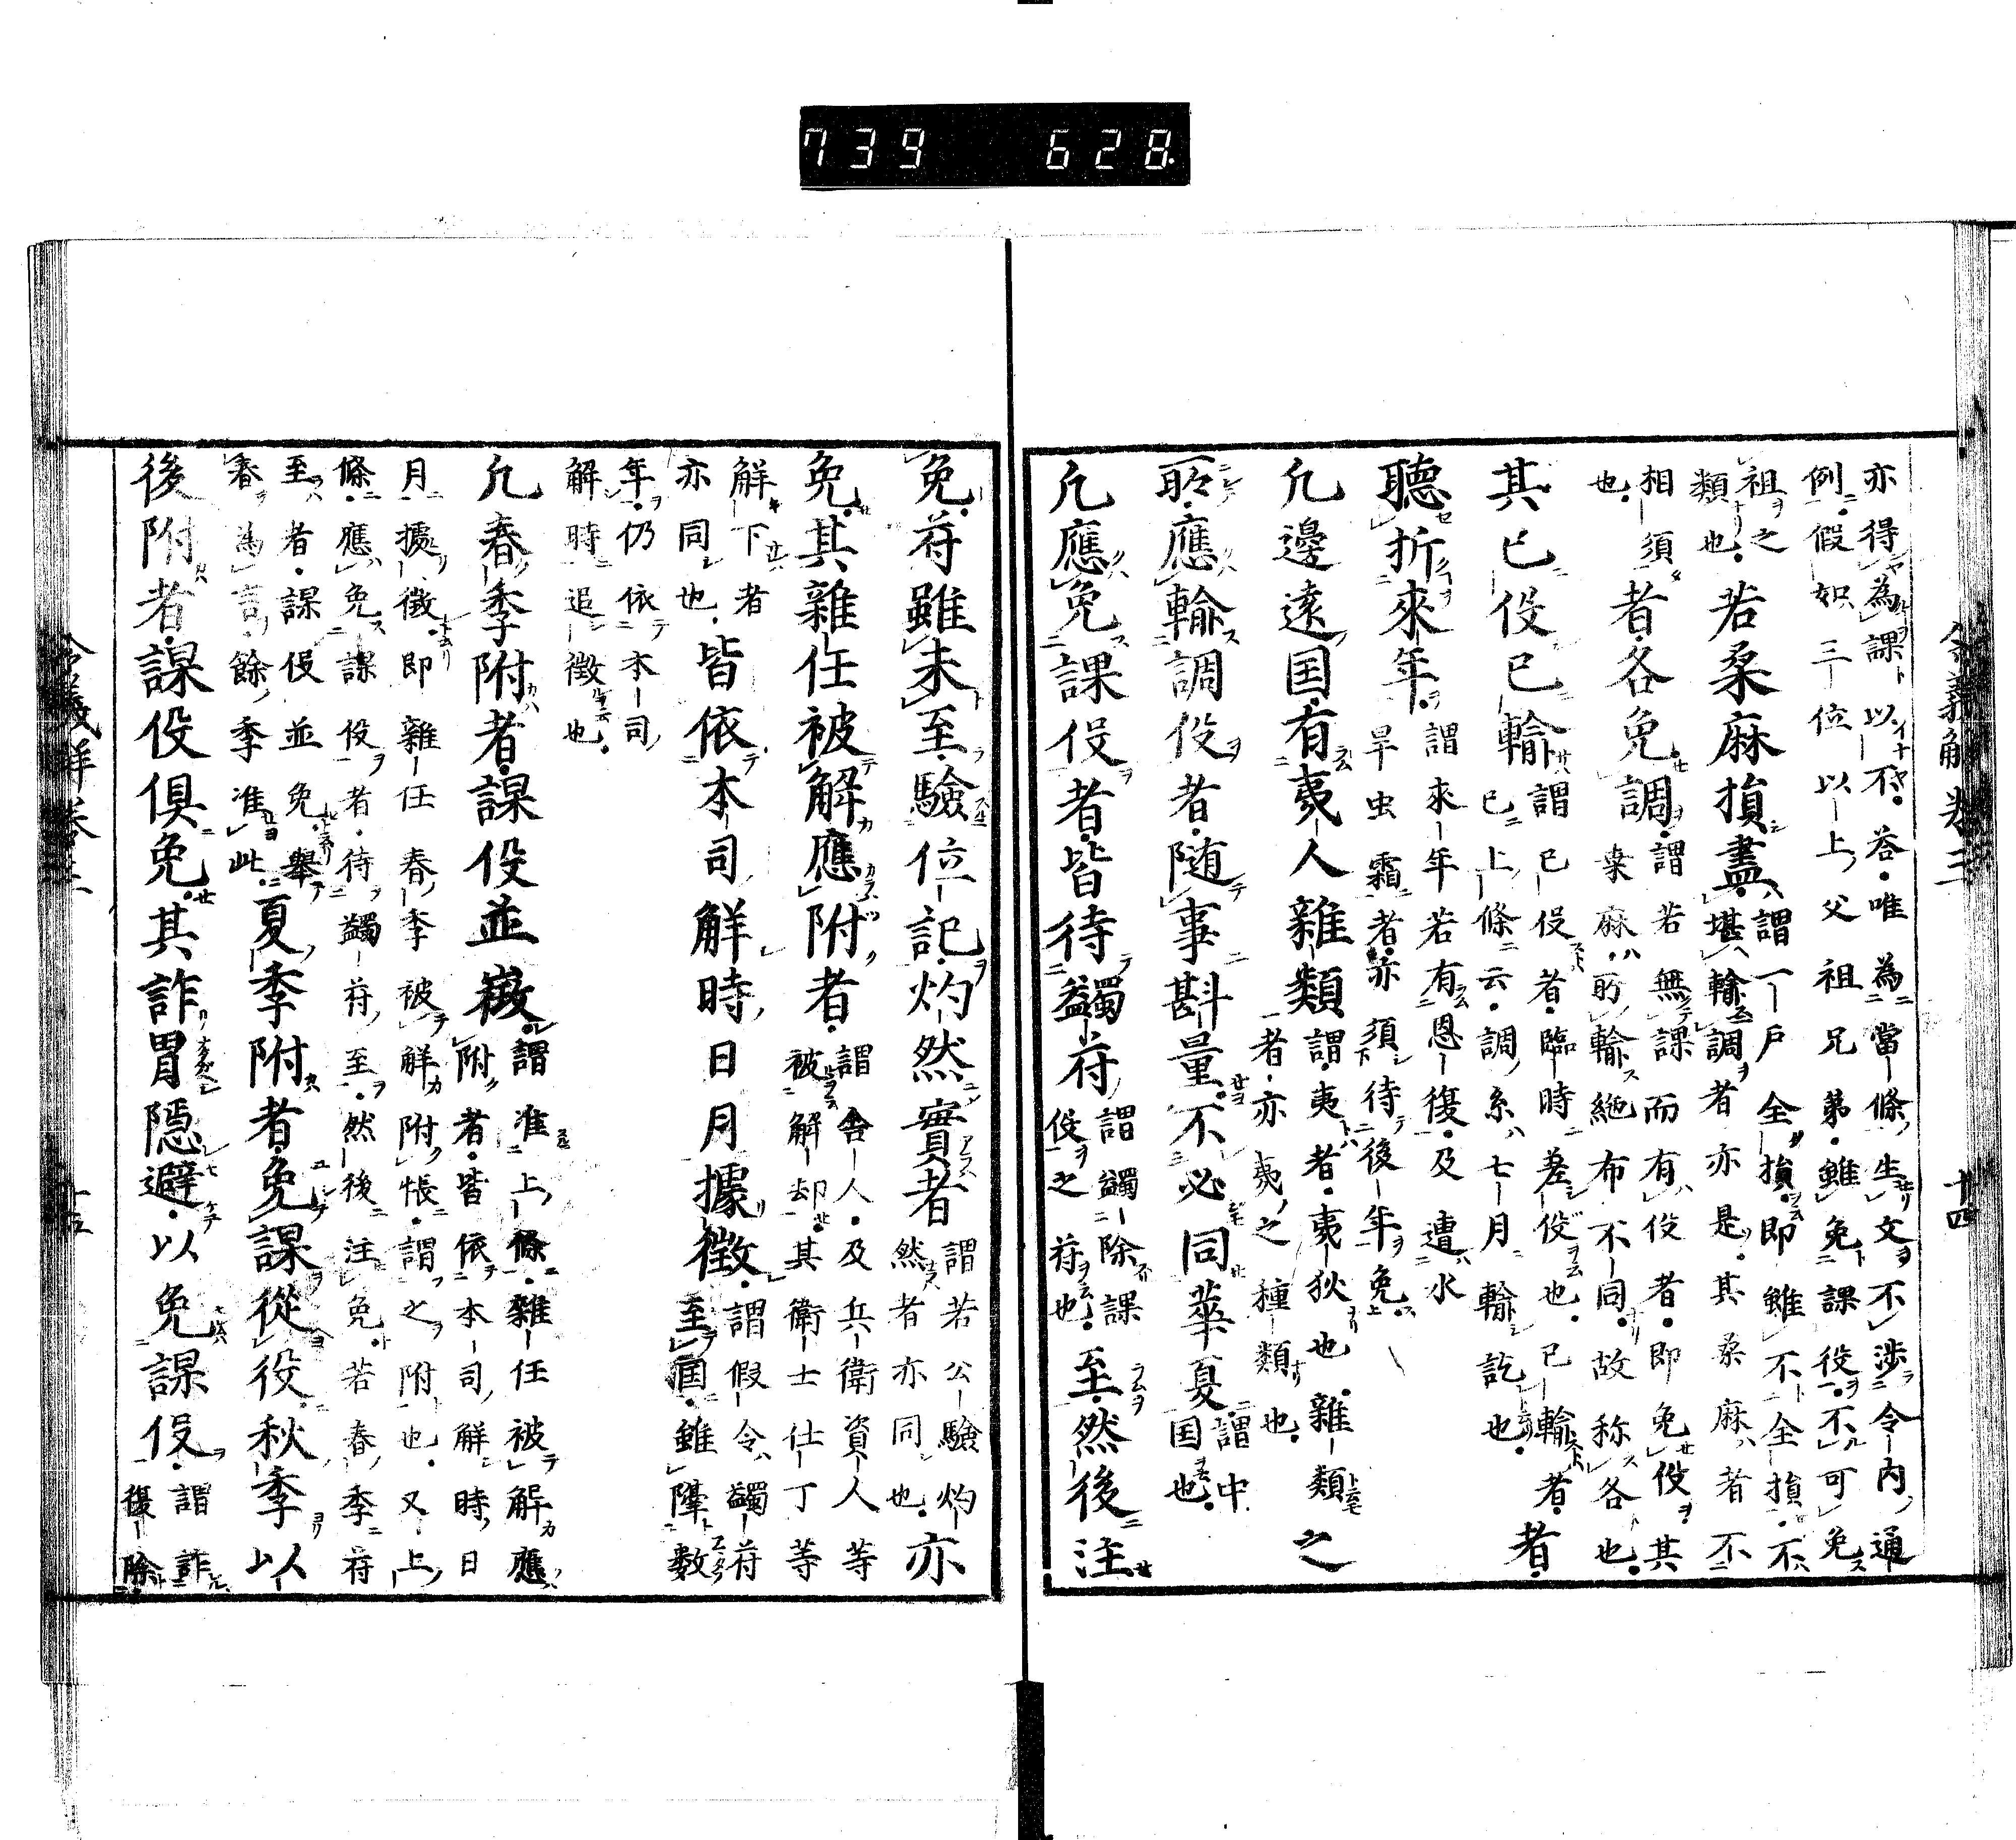 739 628
令義解卷三 十四
亦得為課以不荅唯為當條生文不涉令内通
例假如三位以上父祖兄弟雖免課役不可免
祖之
類也
若桒麻損盡
謂一戸全損即雖不全損不
堪輸調者亦是其桒麻者不
相須
也
者各免調
謂若無課而有役者即免役其
桒麻所輸絁布不同故称各也
其已役已輸
謂已役者臨時差役也已輸者
已上條云調糸七月輸訖也
者
聽折來年
謂來年若有恩復及遭水
旱虫霜者亦須待後年免
凡邊遠国有夷人雜類
謂夷者夷狄也雜類
者亦夷之種類也
之
所應輸調役者随事斟量不必同華夏
謂中
国也
凡應免課役者皆待蠲符
謂蠲除課
役之符也
至然後注
免符雖未至驗位記灼然實者
謂若公驗灼
然者亦同也
亦
免其雜任被解應附者
謂舎人及兵衛資人等
被解却其衛士仕丁等
解下者
亦同也
皆依本司解時日月據徴
謂假令蠲符
至国雖隼数
年仍依本司
解時追徴也
凡春季附者課役並徴
謂准上條雜任被解應
附者皆依本司解時日
月據徴即雜任春季被解附帳謂之附也又上
條應免課役者待蠲符至然後注免若春季符
至者課役並免舉
春為言餘季准此
夏季附者免課從役秋季以
後附者課役倶免其詐冒隠避以免課役
謂詐
復除
令義解卷三 十五